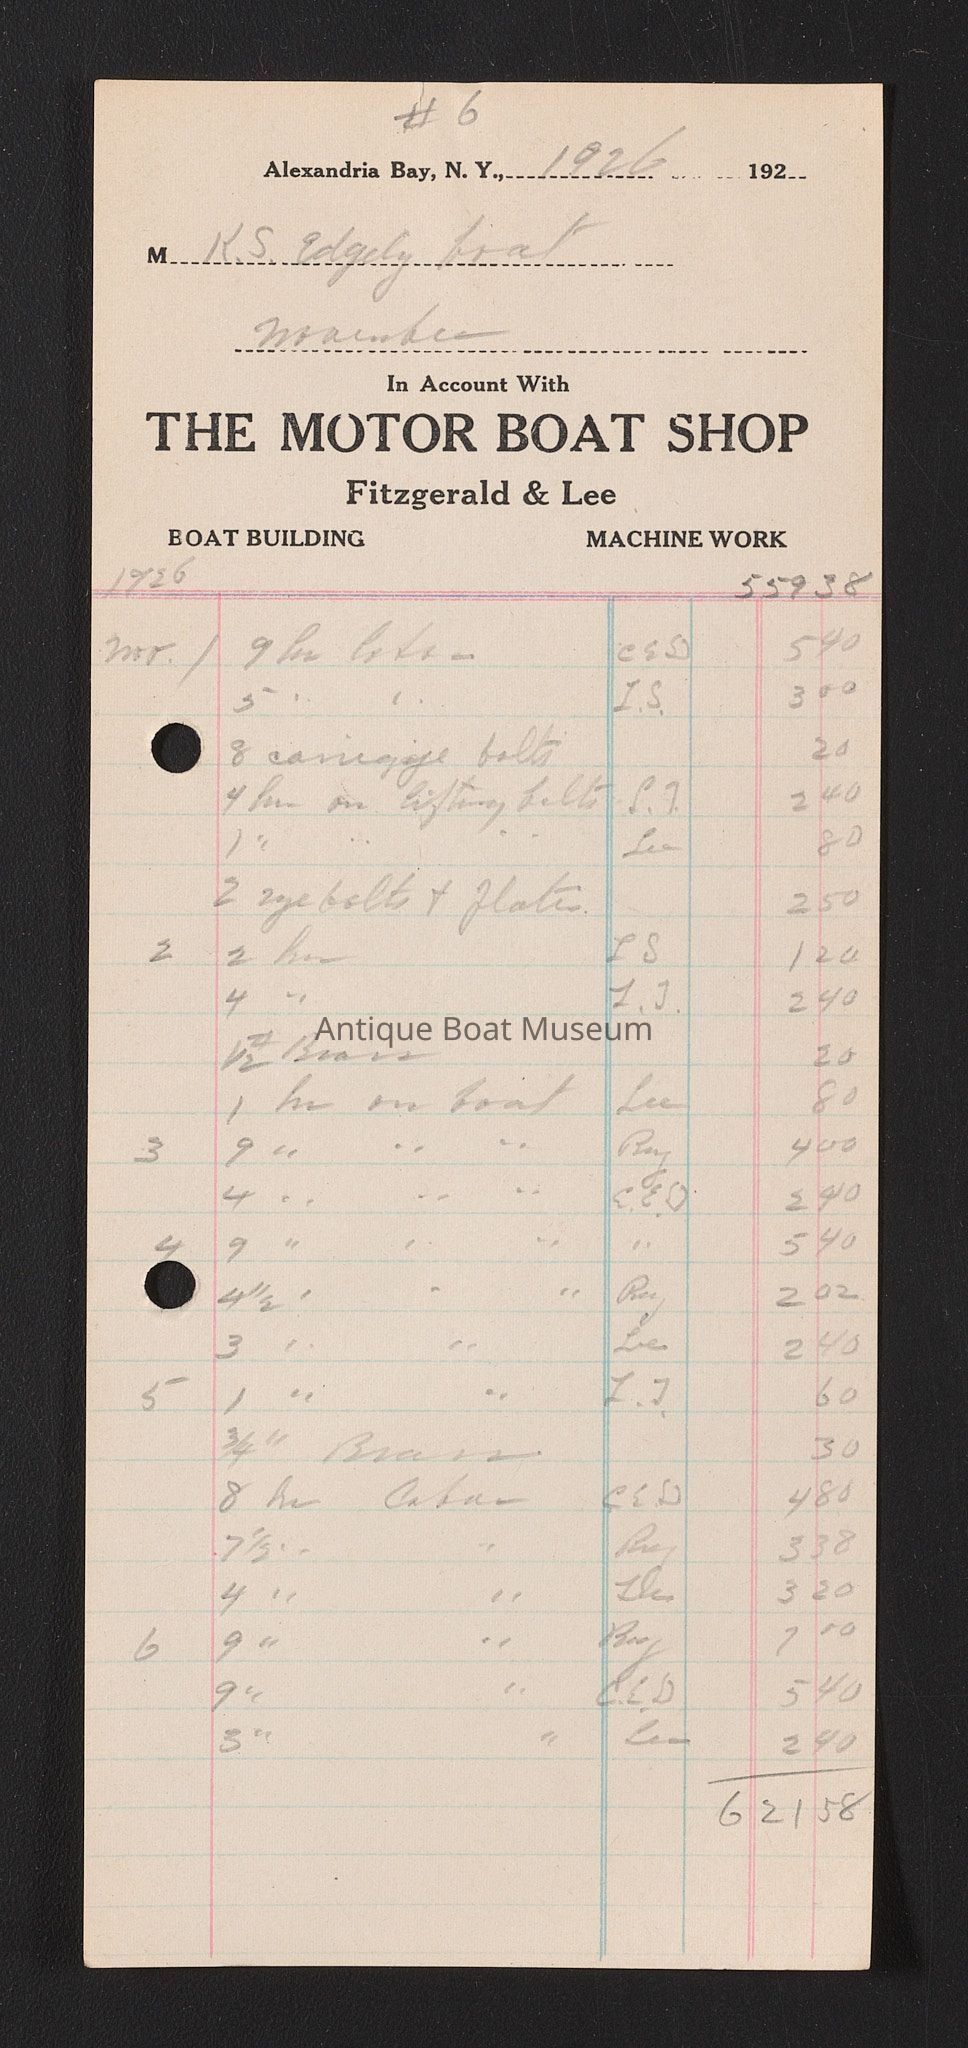 # 6
Alexandria Bay, N. Y., 1926 192
M K.S. Edgely boat
November
In Account With
THE MOTOR BOAT SHOP
Fitzgerald & Lee
BOAT BUILDING MACHINE WORK
1926 559 38
Nov. 1 9 hr labor C E D 5 40
5 " " L.S. 3 00
8 carriage bolts 20
4 hr on lifting bolts 2 40
1 " " " Lee 80
2 eye bolts + plates. 2 50
2 2 hr L S 1 20
4 " L.J. 2 40
Antique Boat Museum
1/2 # Brass 20
1 hr on boat Lee 80
3 9 " " " Ray 4 00
4 " " " C.E.D 2 40
4 9 " " " " 5 40
4 1/2 " " " Ray 2 02
3 " " Lee 2 40
5 1 " " L.J. 60
3/4 " Brass 30
8 hr Labor C E D 4 80
7 1/2 " " Ray 3 38
4 " " Lee 3 20
6 9 " " Ray 00
9 " " C.E.D 5 40
3 " " Lee 2 40
621 58